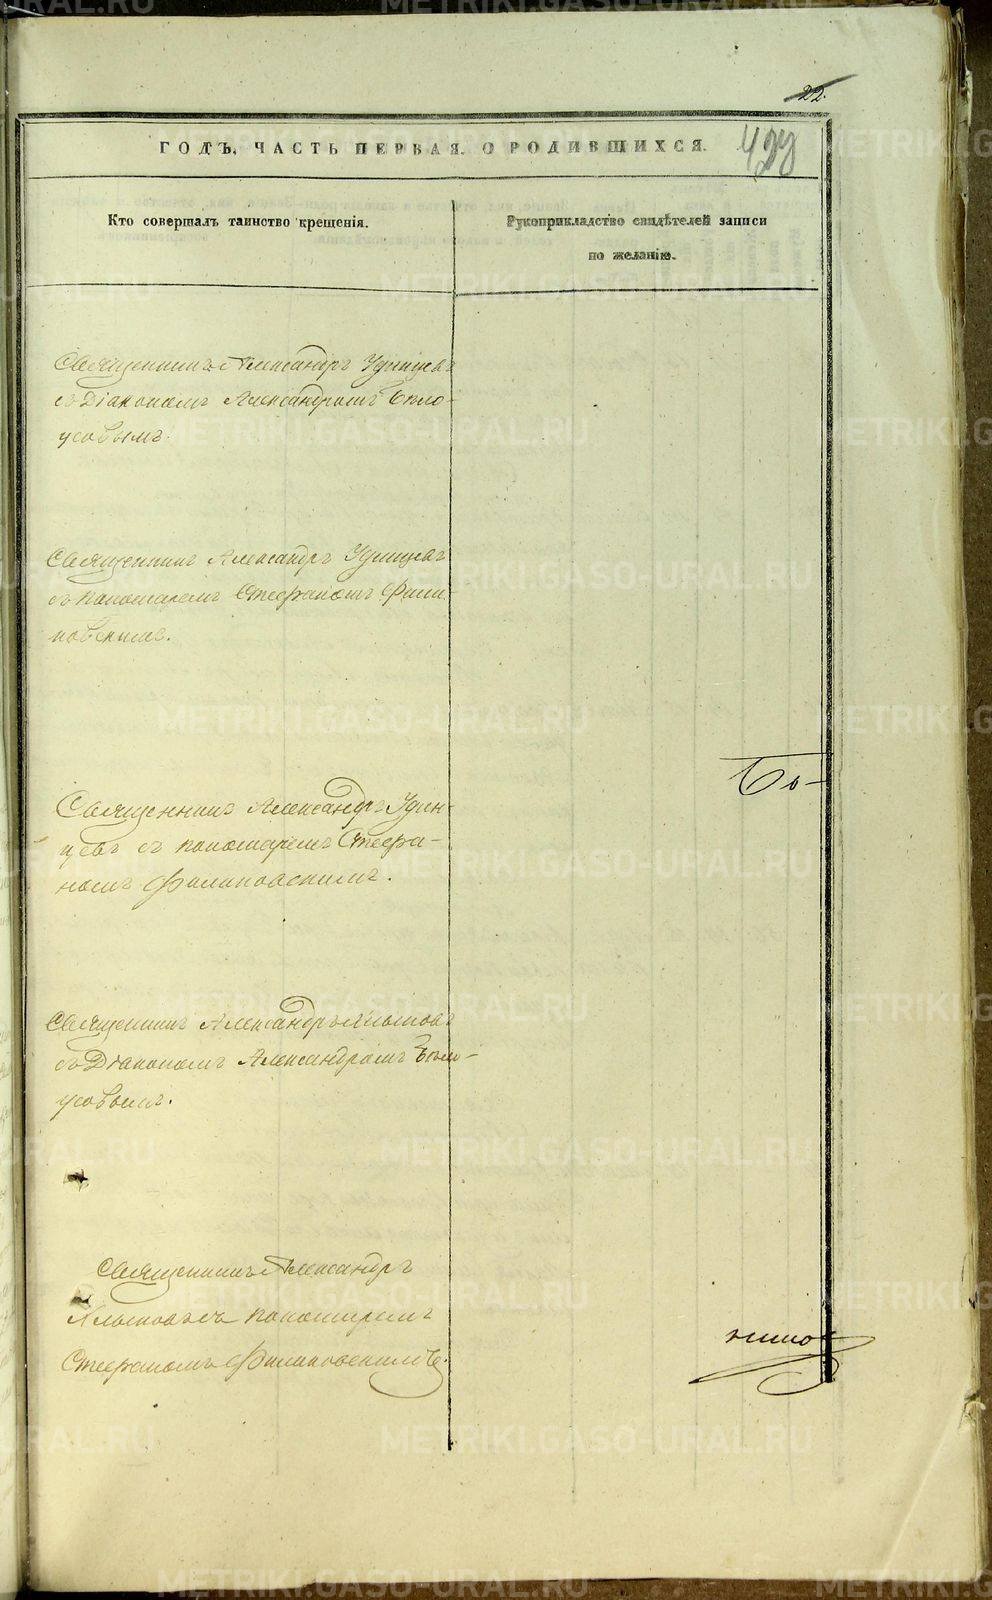 22.
ГОДЪ, ЧАСТЬ ПЕРВАЯ, О РОДИВШИХСЯ.
Кто совершалъ таинство крещенія.
Рукоприкладство свидѣтелей записи
по желанію.
Священникъ Александръ Удинцевъ
съ Діакономъ Александромъ Бѣло-
усовымъ.
Священникъ Александръ Удинцевъ
съ пономаремъ Стефаномъ Фили
повскимъ.
Бо-
Священникъ Александръ Удин-
цевъ съ пономаремъ Стефа-
номъ Филиповскимъ.
Священникъ Александръ
съ Діакономъ Александромъ Бѣло-
усовымъ.
Священникъ Александръ
пономаремъ
Стефаномъ Филиповскимъ.
METRIKI.GASO-URAL.RU